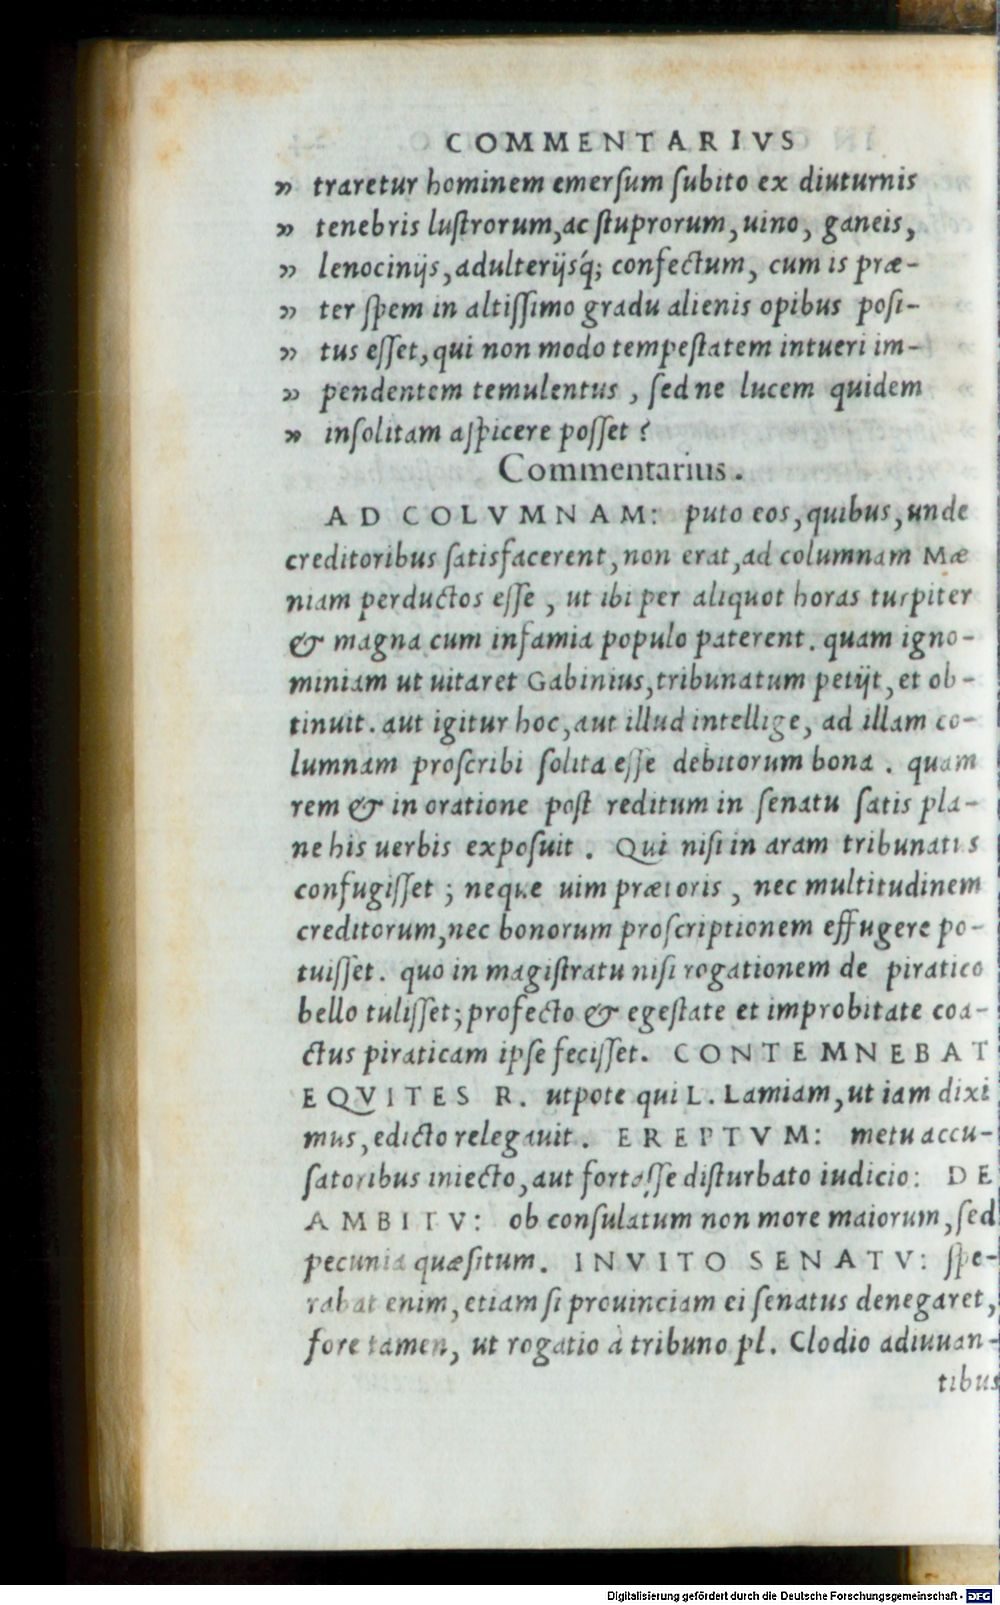 COMMENTARIVS
” traretur hominem emerſum ſubito ex diuturnis
” tenebris luſtrorum, ac ſtuprorum, uino, ganeis,
” lenocinijs, adulterijsq́; confectum, cum is præ-
” ter ſpem in altiſſimo gradu alienis opibus poſi-
” tus eſſet, qui non modo tempeſtatem intueri im-
” pendentem temulentus, ſed ne lucem quidem
” inſolitam aſpicere poſſet?
Commentarius.
AD COLVMNAM: puto eos, quibus, unde
creditoribus ſatisfacerent, non erat, ad columnam Mæ
niam perductos eſſe, ut ibi per aliquot horas turpiter
& magna cum infamia populo paterent. quam igno-
miniam ut uitaret Gabinius, tribunatum petijt, et ob-
tinuit. aut igitur hoc, aut illud intellige, ad illam co-
lumnam proſcribi ſolita eſſe debitorum bona. quam
rem & in oratione poſt reditum in ſenatu ſatis pla-
ne his uerbis expoſuit. Qui niſi in aram tribunatus
confugiſſet; neque uim prætoris, nec multitudinem
creditorum, nec bonorum proſcriptionem effugere po-
tuiſſet. quo in magiſtratu niſi rogationem de piratico
bello tuliſſet; profecto & egeſtate et improbitate coa-
ctus piraticam ipſe feciſſet. CONTEMNEBAT
EQVITES R. utpote qui L. Lamiam, ut iam dixi
mus, edicto relegauit. EREPTVM: metu accu-
ſatoribus iniecto, aut fortaſſe diſturbato iudicio: DE
AMBITV: ob conſulatum non more maiorum, ſed
pecunia quæſitum. INVITO SENATV: ſpe-
rabat enim, etiam ſi prouinciam ei ſenatus denegaret,
fore tamen, ut rogatio à tribuno pl. Clodio adiuuan-
tibus
Digitalisierung gefördert durch die Deutsche Forschungsgemeinschaft - DFG